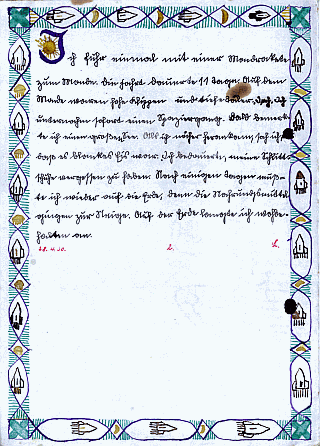 Ich fuhr einmal mit einer Mondrakete
zum Monde. Die Fahrt dauerte 11 Tage. Auf dem
Monde waren hohe Klippen und tiefe Täler. Ich
unternahm sofort einen Spaziergang. Bald bemerk-
te ich einen großen. Als ich näher herankam, sah ich,
daß es blankes Eis war. Ich bedauerte, meine Schlitt-
schuhe vergessen zu haben. Nach einigen Tagen muß-
te ich wieder auf die Erde, denn die Nahrungsmittel
gingen zur Neige. Auf der Erde langte ich wohlbe-
halten an.
2. L.